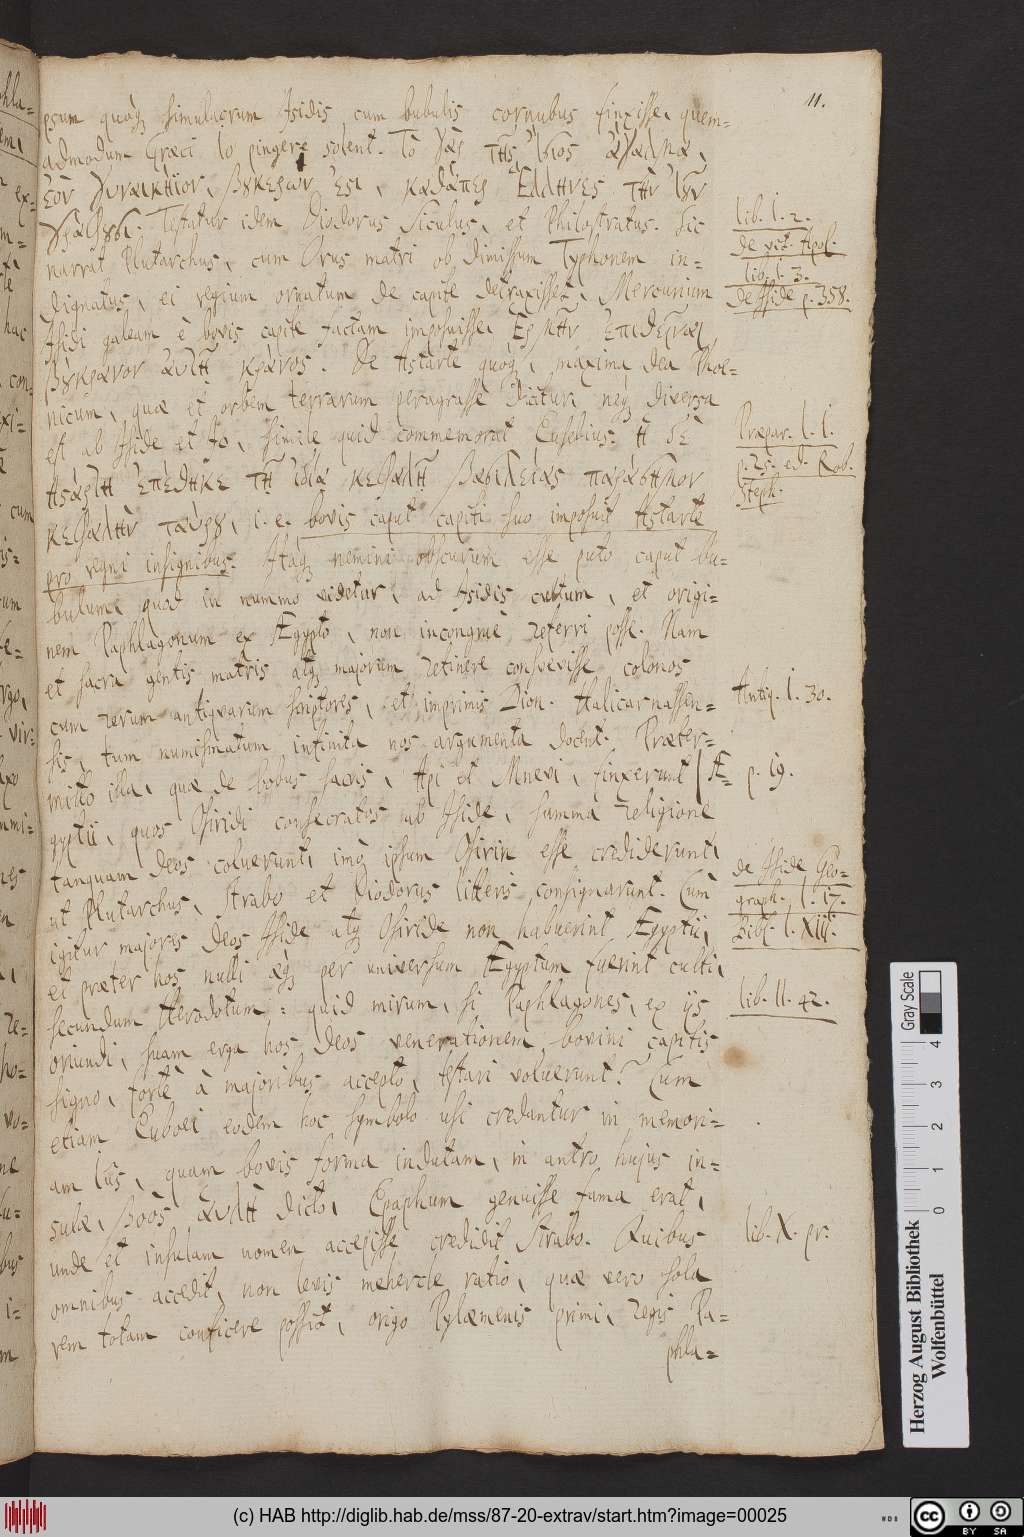 11.
psum quoq; simulacrum Isidis cum bubulis cornubus finxisse, quem=
admodum Graeci Io pingere solent. Τὸ γὰρ τῆς Ἴσιος ἄγαλμα,
ἐὸν γυναικήϊον, βούκερων ἐςι, καθάπερ Ἕλληνες τὴν Ἰοῦν
γράφουσι. Testatur idem Diodorus Siculus, et Philostratus. Sic
lib. I. 2.
de vit. Apol.
narrat Plutarchus, cum Orus matri ob dimissum Typhonem in=
lib. I. 3.
dignatus, ei regium ornatum de capite detraxisset, Mercurium
de Iside p. 358.
Isidi galeam è bovis capite factam imposuisse, Ἑρμῆν ἐπιθεῖναι
βούκρανον αὐτῇ κράνος. De Astarte quoq;, maxima dea Phoe=
nicum, quae et orbem terrarum peragrasse dicitur neq; diversa
est ab Iside et Io, simile quid commemorat Eusebius. Ἡ δὲ
Praepar. l. I.
p. 25. ed. Rob.
Steph.
Ἀςάρτη ἐπέθηκε τῇ ἰδίᾳ κεφαλῇ βασιλείας παράσημον
κεφαλὴν ταύρου, i. e. bovis caput capiti suo imposuit Astarte
pro regni insignibus. Itaq; nemini obscurum esse puto caput bu=
bulum, quod in nummo videtur, ad Isidis cultum, et origi=
nem Paphlagonum ex Ægypto, non incongruè referri posse. Nam
et sacra gentis matris atq; majorum retinere consuevisse colonos
cum rerum antiquarum scriptores, et imprimis Dion. Halicarnassen=
Antiq. l. 30.
sis, tum numismatum infinita nos argumenta docent. Praeter=
mitto illa, quae de bobus sacris, Api et Mnevi, finxerunt [Æ=
p. 19.
gyptii, quos Osiridi consecratos ab Iside, summa religione
tanquam Deos coluerunt, imò ipsum Osirin esse crediderunt,
ut Plutarchus, Strabo et Diodorus litteris consignarunt. Cum
de Iside Geo=
graph. l. 17.
Bibl. l. XIII.
igitur majoris Deos Iside atq; Osiride non habuerint Ægyptii,
et praeter hos nulli aeq; per universum Ægyptum fuerint culti,
secundum Herodotum: quid mirum, si Paphlagones, ex iis
lib. II. 42.
oriundi, suam erga hos Deos venerationem bovini capitis
signo, fortè à majoribus accepto, testari voluerunt? Cum
etiam Euboei eodem hoc symbolo usi credantur in memori=
am Iûs, quam bovis forma indutam, in antro hujus in=
sulae, Βοὸς αὐλῇ dicto, Epaphum genuisse fama erat,
unde et insulam nomen accepisse credidit Strabo. Quibus
lib. X. pr.
omnibus accedit, non levis mehercle ratio, quae vero sola
rem totam conficere possit, origo Pylaemenis primi, regis Pa=
phla=
Gray Scale
0 1 2 3 4
Herzog August Bibliothek
Wolfenbüttel
(c) HAB http://diglib.hab.de/mss/87-20-extrav/start.htm?image=00025
cc BY SA